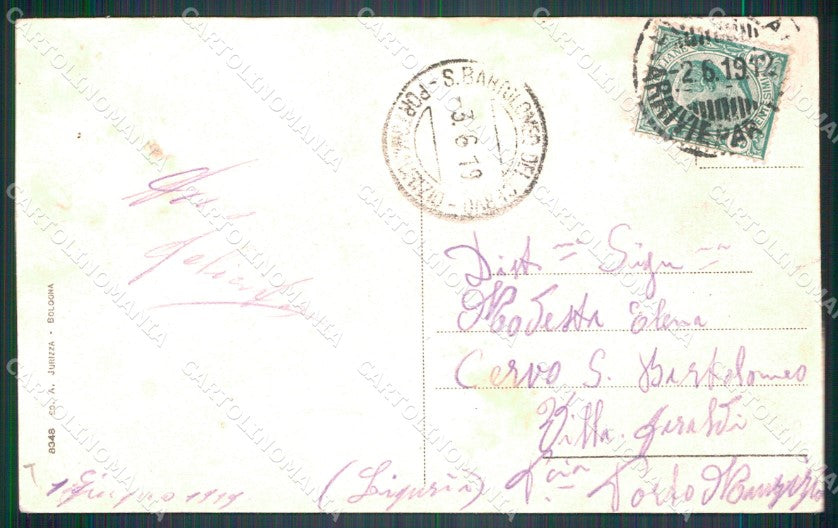 2.6.19 12
ARRIVI E PAR
S. BARTOLOMEO DEL CERVO - PORTO MAURIZIO
3.6.19
8348 ED. A. JURIZZA - BOLOGNA
Dist.ma Sign.na
Modesta Elena
Cervo S. Bartolomeo
Villa
(Liguria) P.cia Porto Maurizio
1 Giugno 1919
CARTOLINOMANIA